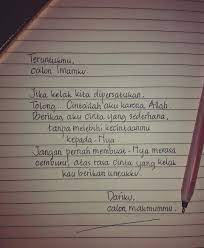 Teruntukmu,
calon Imamku
Jika kelak kita dipersatukan.
Tolong... Cintailah aku karena Allah
Berikan aku cinta yang sederhana,
tanpa melebihi kecintaanmu
kepada-Nya
Jangan pernah membuat-Nya merasa
cemburu, atas rasa cinta yang kelak
kau berikan untukku.
Dariku,
calon makmummu.